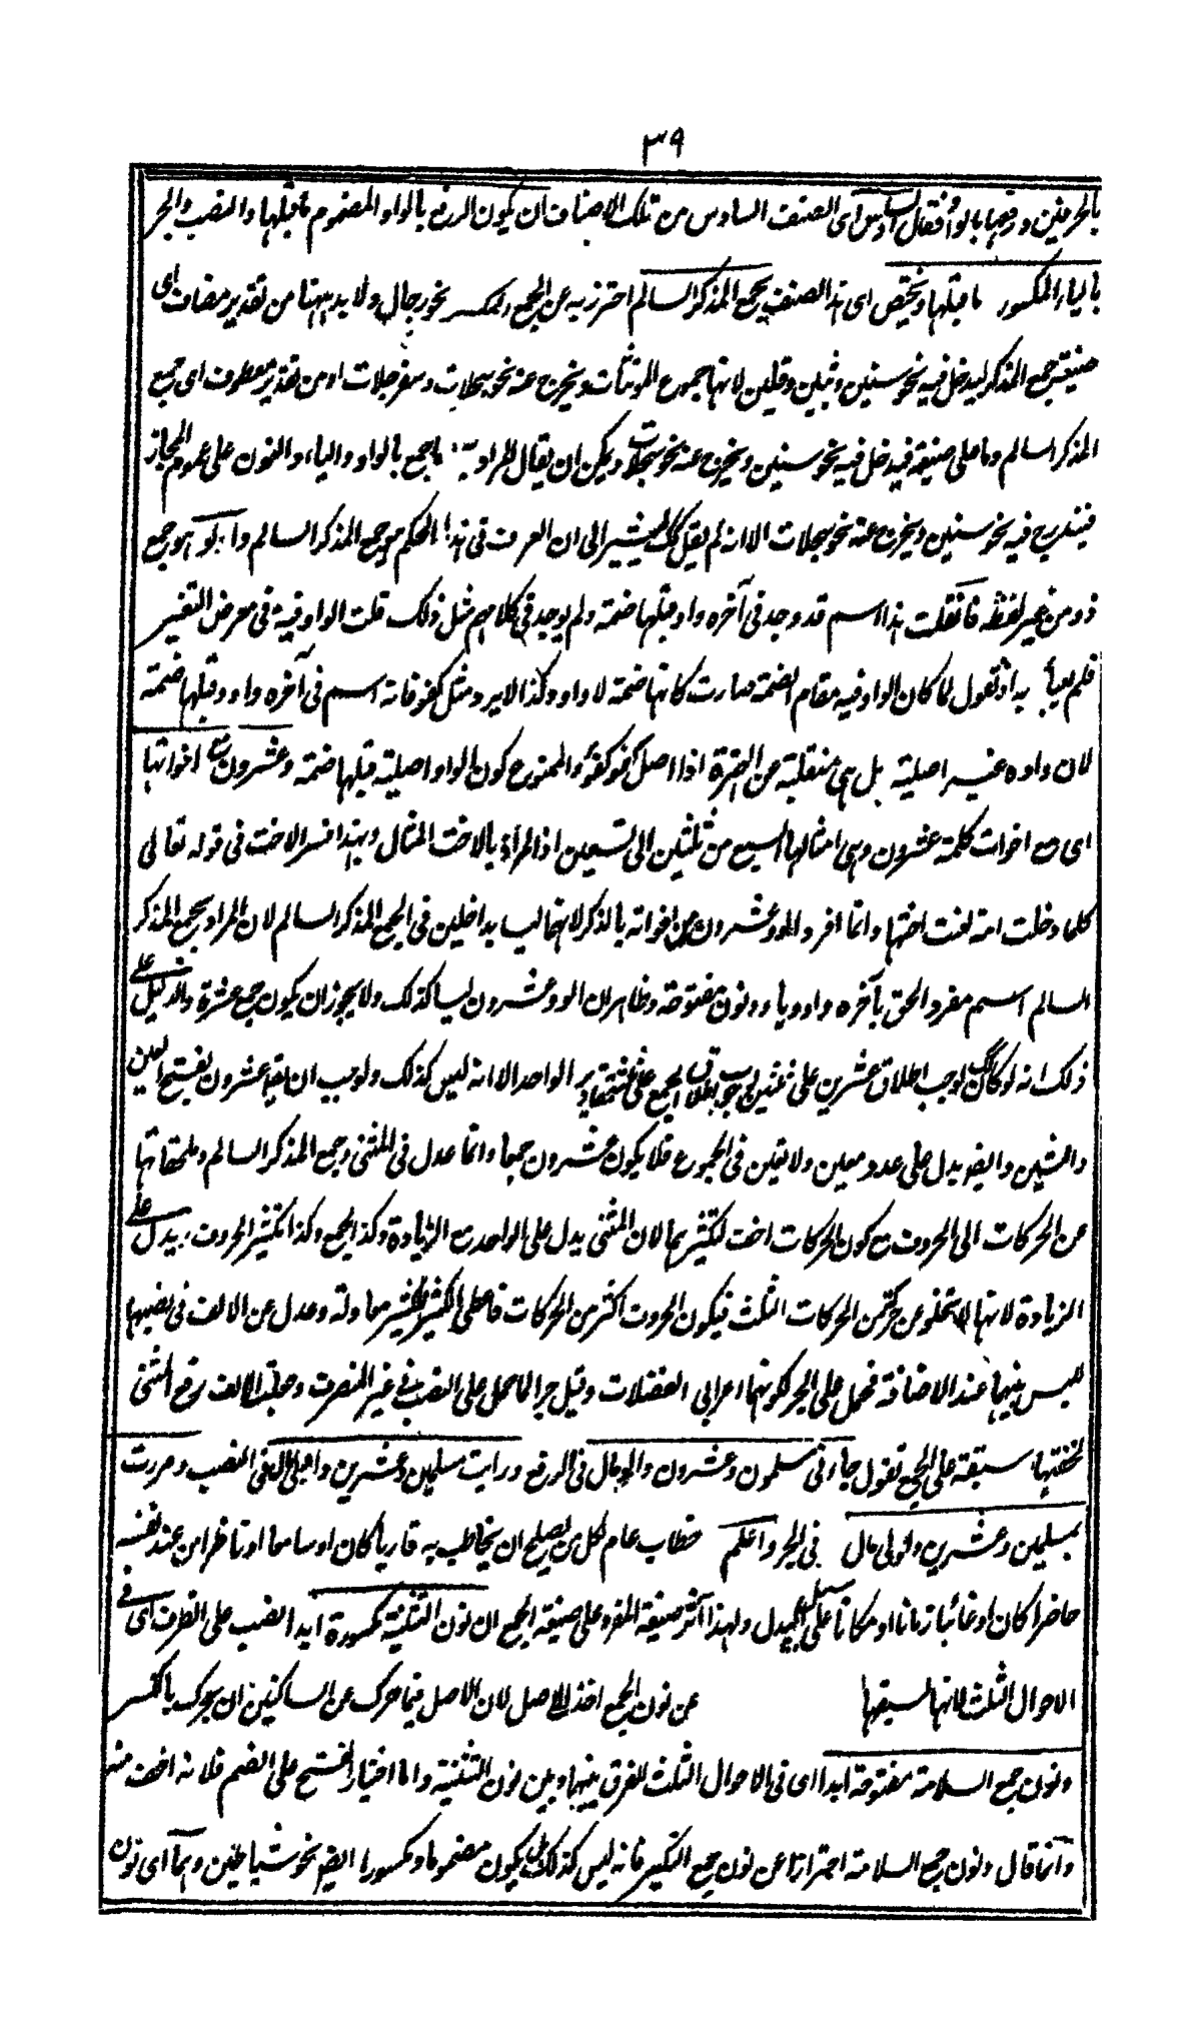 ٣٩
بالحرفين ورفعها بالواو فقال السادس اى الصنف السادس من تلك الاصناف ان يكون الرفع بالواو المضموم ما قبلها والنصب والجر
بالياء المكسور ما قبلها ويختص اى هذا الصنف بجمع المذكر السالم احترز به عن الجمع المكسر نحو رجال ولا بد ههنا من تقدير مضاف اى
صيغة جمع المذكر ليدخل فيه نحو سنين وثبين وقلين لانها جموع المونثات ويخرج عنه نحو سجلات وسفرجلات او من تقدير معطوف اى جمع
المذكر السالم وما على صيغته فيدخل فيه نحو سنين ويخرج عنه نحو سجلات ويمكن ان يقال المراد به ما جمع بالواو والياء والنون على عموم المجاز
فيندرج فيه نحو سنين ويخرج عنه نحو سجلات الا انه لم يقل كذلك ليشير الى ان العرف فى هذا الحكم هو جمع المذكر السالم واولو هو جمع
ذو من غير لفظه فان قلت هذا اسم قد وجد فى آخره واو قبلها ضمة ولم يوجد فى كلامهم مثل ذلك قلت الواو فيه فى معرض التغير
فلم يعبأ به او نقول لما كان الواو فيه مقام الضمة صارت كانها ضمة لا واو وكذا لا يرد مثل كفو فانه اسم فى آخره واو وقبلها ضمة
لان واوه غير اصلية بل هى منقلبة عن الهمزة اذ اصل كفو كفؤ والممنوع كون الواو اصلية قبلها ضمة وعشرون مع اخواتها
اى مع اخوات كلمة عشرون وهى امثالها السبع من ثلثين الى تسعين اذ المراد بالاخت المثال وبهذا فسر الاخت فى قوله تعالى
كلما دخلت امة لعنت اختها وانما افرد اولو وعشرون مع اخواته بالذكر لانهما ليسا بداخلين فى الجمع المذكر السالم لان المراد بجمع المذكر
السالم اسم مفرد الحق بآخره واو وياء ونون مفتوحة وظاهر ان اولو وعشرون ليسا كذلك ولا يجوز ان يكون جمع عشرة والدليل على
ذلك انه لو كان كذلك لوجب اطلاق عشرين على ثلثين لوجوب اطلاق الجمع على ثلثة مقادير الواحد الا انه ليس كذلك ولوجب ان يقال عشرون بفتح العين
والشين وايضا يدل على عدد معين ولا تعين فى الجموع فلا يكون عشرون جمعا وانما عدل فى المثنى وجمع المذكر السالم وملحقاتها
عن الحركات الى الحروف مع كون الحركات اخف لتكثيرهما لان المثنى يدل على الواحد مع الزيادة وكذا الجمع وكذا تكثير الحروف يدل على
الزيادة لانها لا تخلو عن حركة من الحركات الثلث فيكون الحروف اكثر من الحركات فاعطى الكثير للكثير معادلة وعدل عن الالف فى نصبهما
لئلا يلتبس بينهما عند الاضافة فحمل على الجر لكونهما اعرابى الفضلات وقيل جرا لما حمل على النصب فى غير المنصرف وجعلت الالف رفع المثنى
لخفتها سبقة على الجمع تقول جاءنى مسلمون وعشرون واولو مال فى الرفع ورايت مسلمين وعشرين واولى مال فى النصب ومررت
بمسلمين وعشرين واولى مال فى الجر واعلم خطاب عام لكل من يصلح ان يخاطب به قاريا كان او سامعا او ناظرا من عند نفسه
حاضرا كان او غائبا زمانا او مكانا على سبيل البدل ولهذا آثر صيغة المفرد على صيغة الجمع ان نون التثنية مكسورة ابدا نصب على الظرف اى فى
الاحوال الثلث لانها لسبقها عن نون الجمع اخذ الاصل لان الاصل فيما حرك عن الساكنين ان يحرك بالكسر
ونون جمع السلامة مفتوحة ابدا اى فى الاحوال الثلث للفرق بينها وبين نون التثنية واما اختيار الفتح على الضم فلانه اخف منه
وانما قال ونون جمع السلامة احترازا عن نون جمع التكسير فانه ليس كذلك بل يكون مضموما ومكسورا ايضا نحو شياطين وهما اى نون